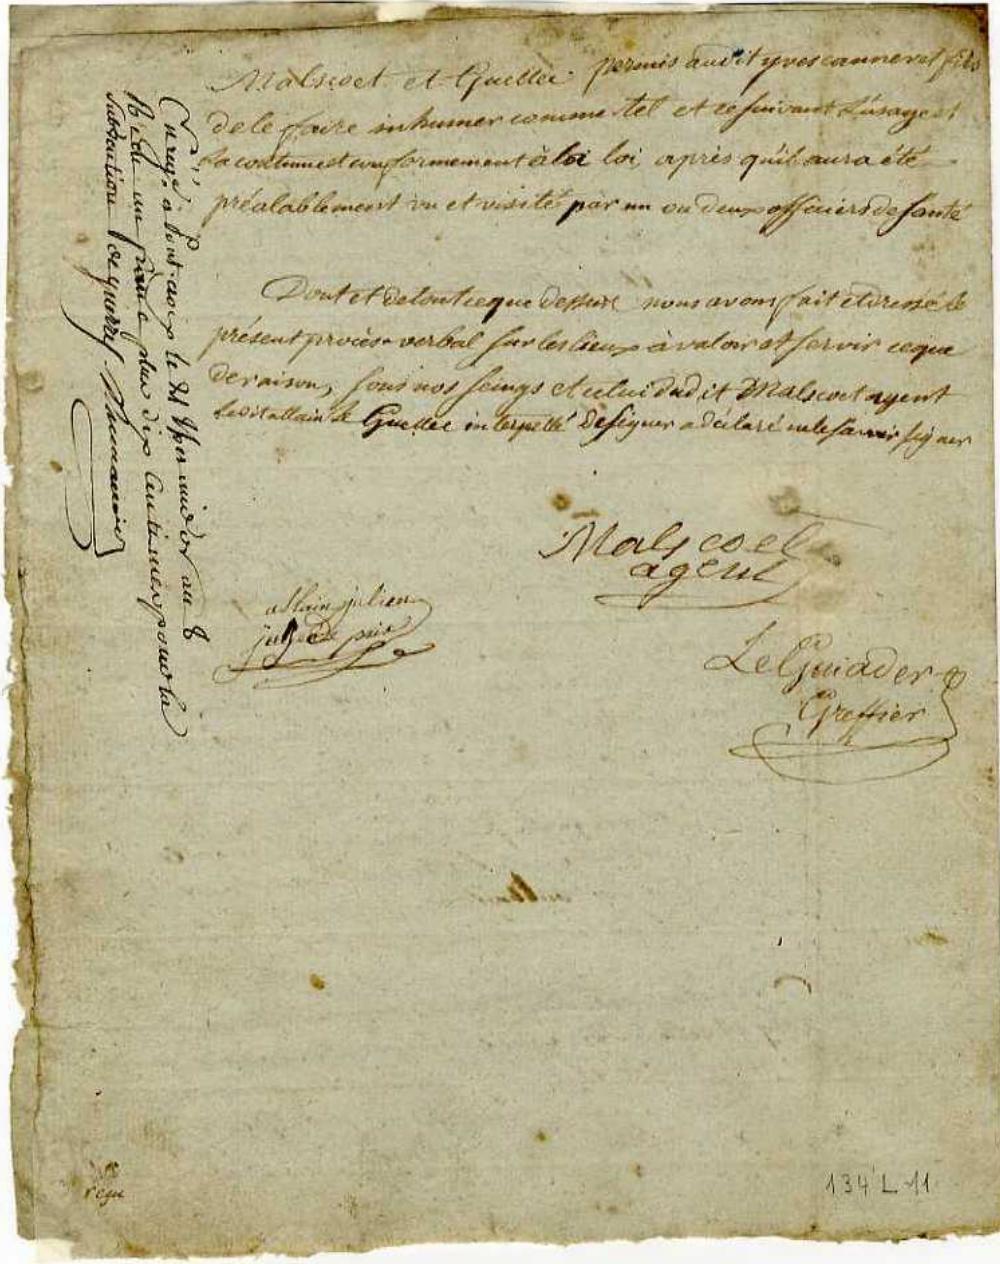 Malscoet et Guellec permis audit yves canneret fils
de le faire inhumer comme tel et ce suivant L'usage et
La coutume et conformement à loi loi, après qu'il aura été
préalablement vu et visité par un ou deux officiers de santé
Dont et de tout ce que dessus nous avons fait et dressé le
présent procès-verbal sur les lieux à valoir et servir ce que
de raison, sous nos seings et celui dudit Malscoet agent
Ledit allain le Guellec interpellé de signer a déclaré ne le savoir signer
Malscoet
agent
allain julien
juge de paix
Le Guiader
Greffier
Enreg. à Pont-croix le 21 an 8
Reçu un franc plus dix Centimes pour la
Subvention de guerre
reçu
134 L 11